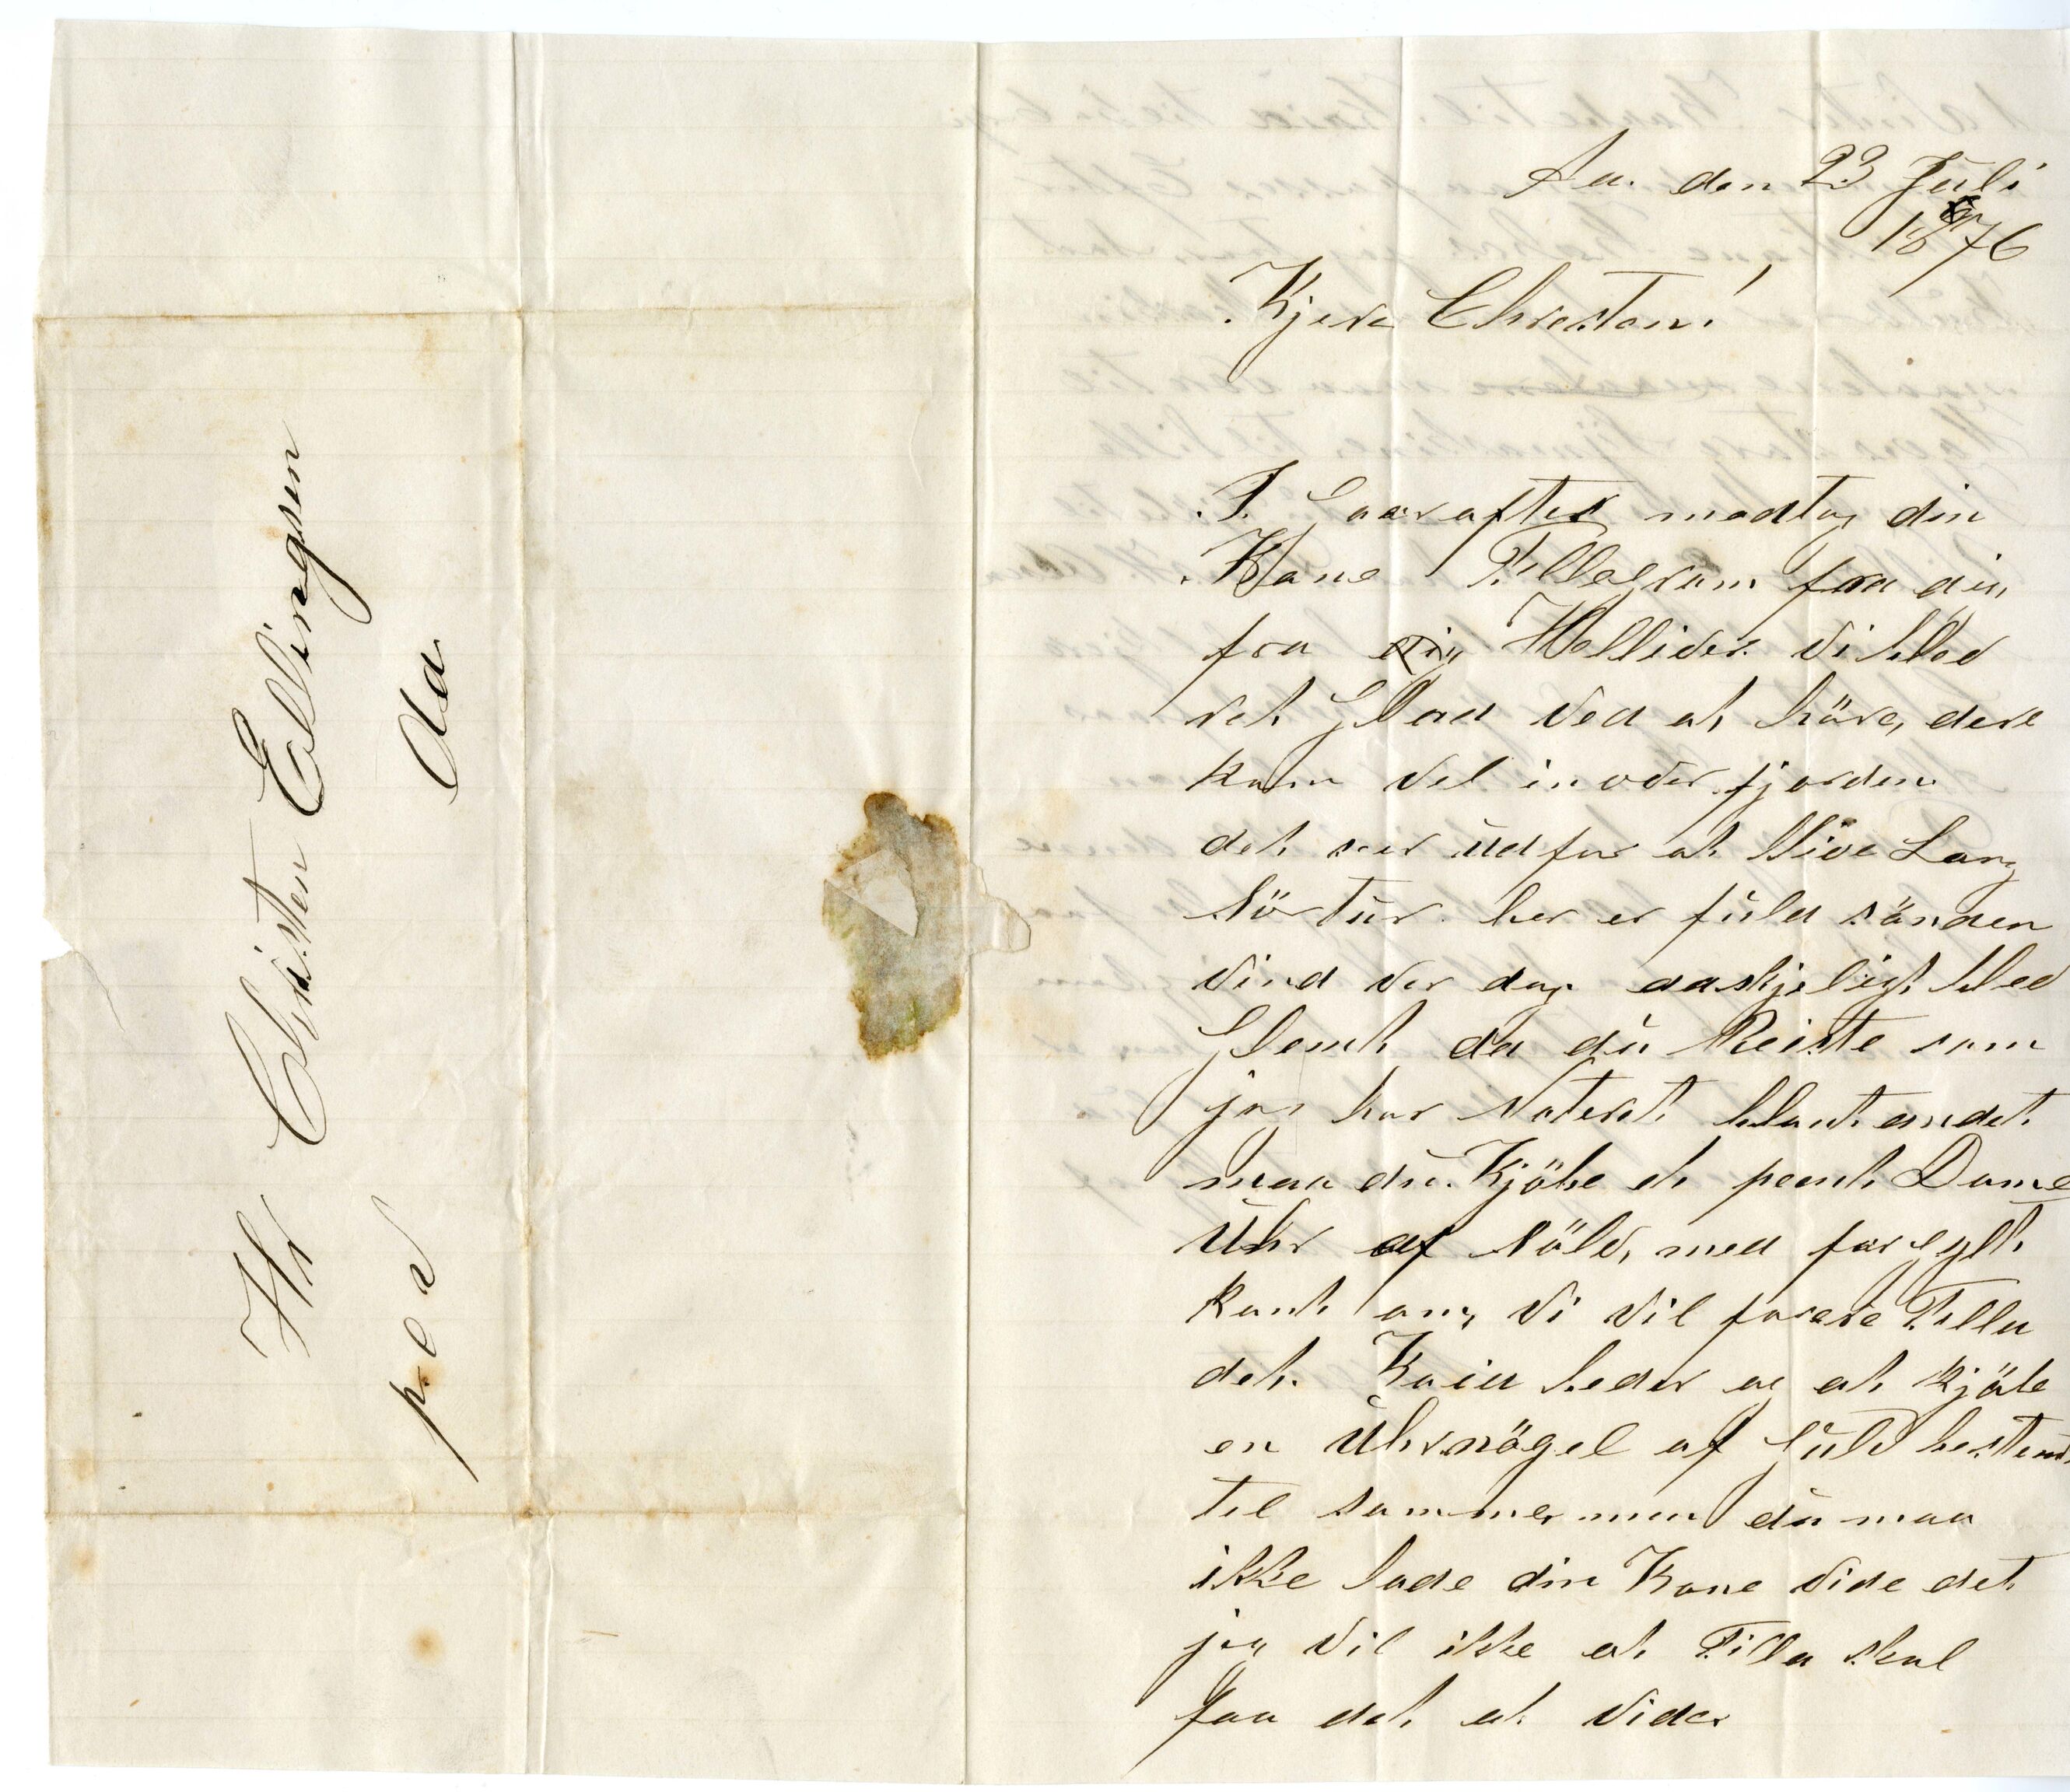 Hr Christen Ellingsen
Aa
p e r
Aa. den 23 Juli
1876
Kjere Christen!
I. Gaaraftes modtog din
Kone Tellegram fra din
fra Hellider vi blev
ret Glad ved at höre, dere
kom vel in over fjorden
det ser ud for at blive Lang
Nörtur her er fuld sönden
vind ver dag adskjeligt blev
Glemt da du Reiste som
jeg har Noteret blant andet
maa du Kjöbe et pent Dame
Uhr af Sölv, med forgylt
kant om, vi vil forere Tilla
det. Kaia beder og at kjöbe
en Uhrnögel af Guld bestemt
til sammen men du maa
ikke lade din Kone vide det
jeg vil ikke at Tilla skal
faa det at vide